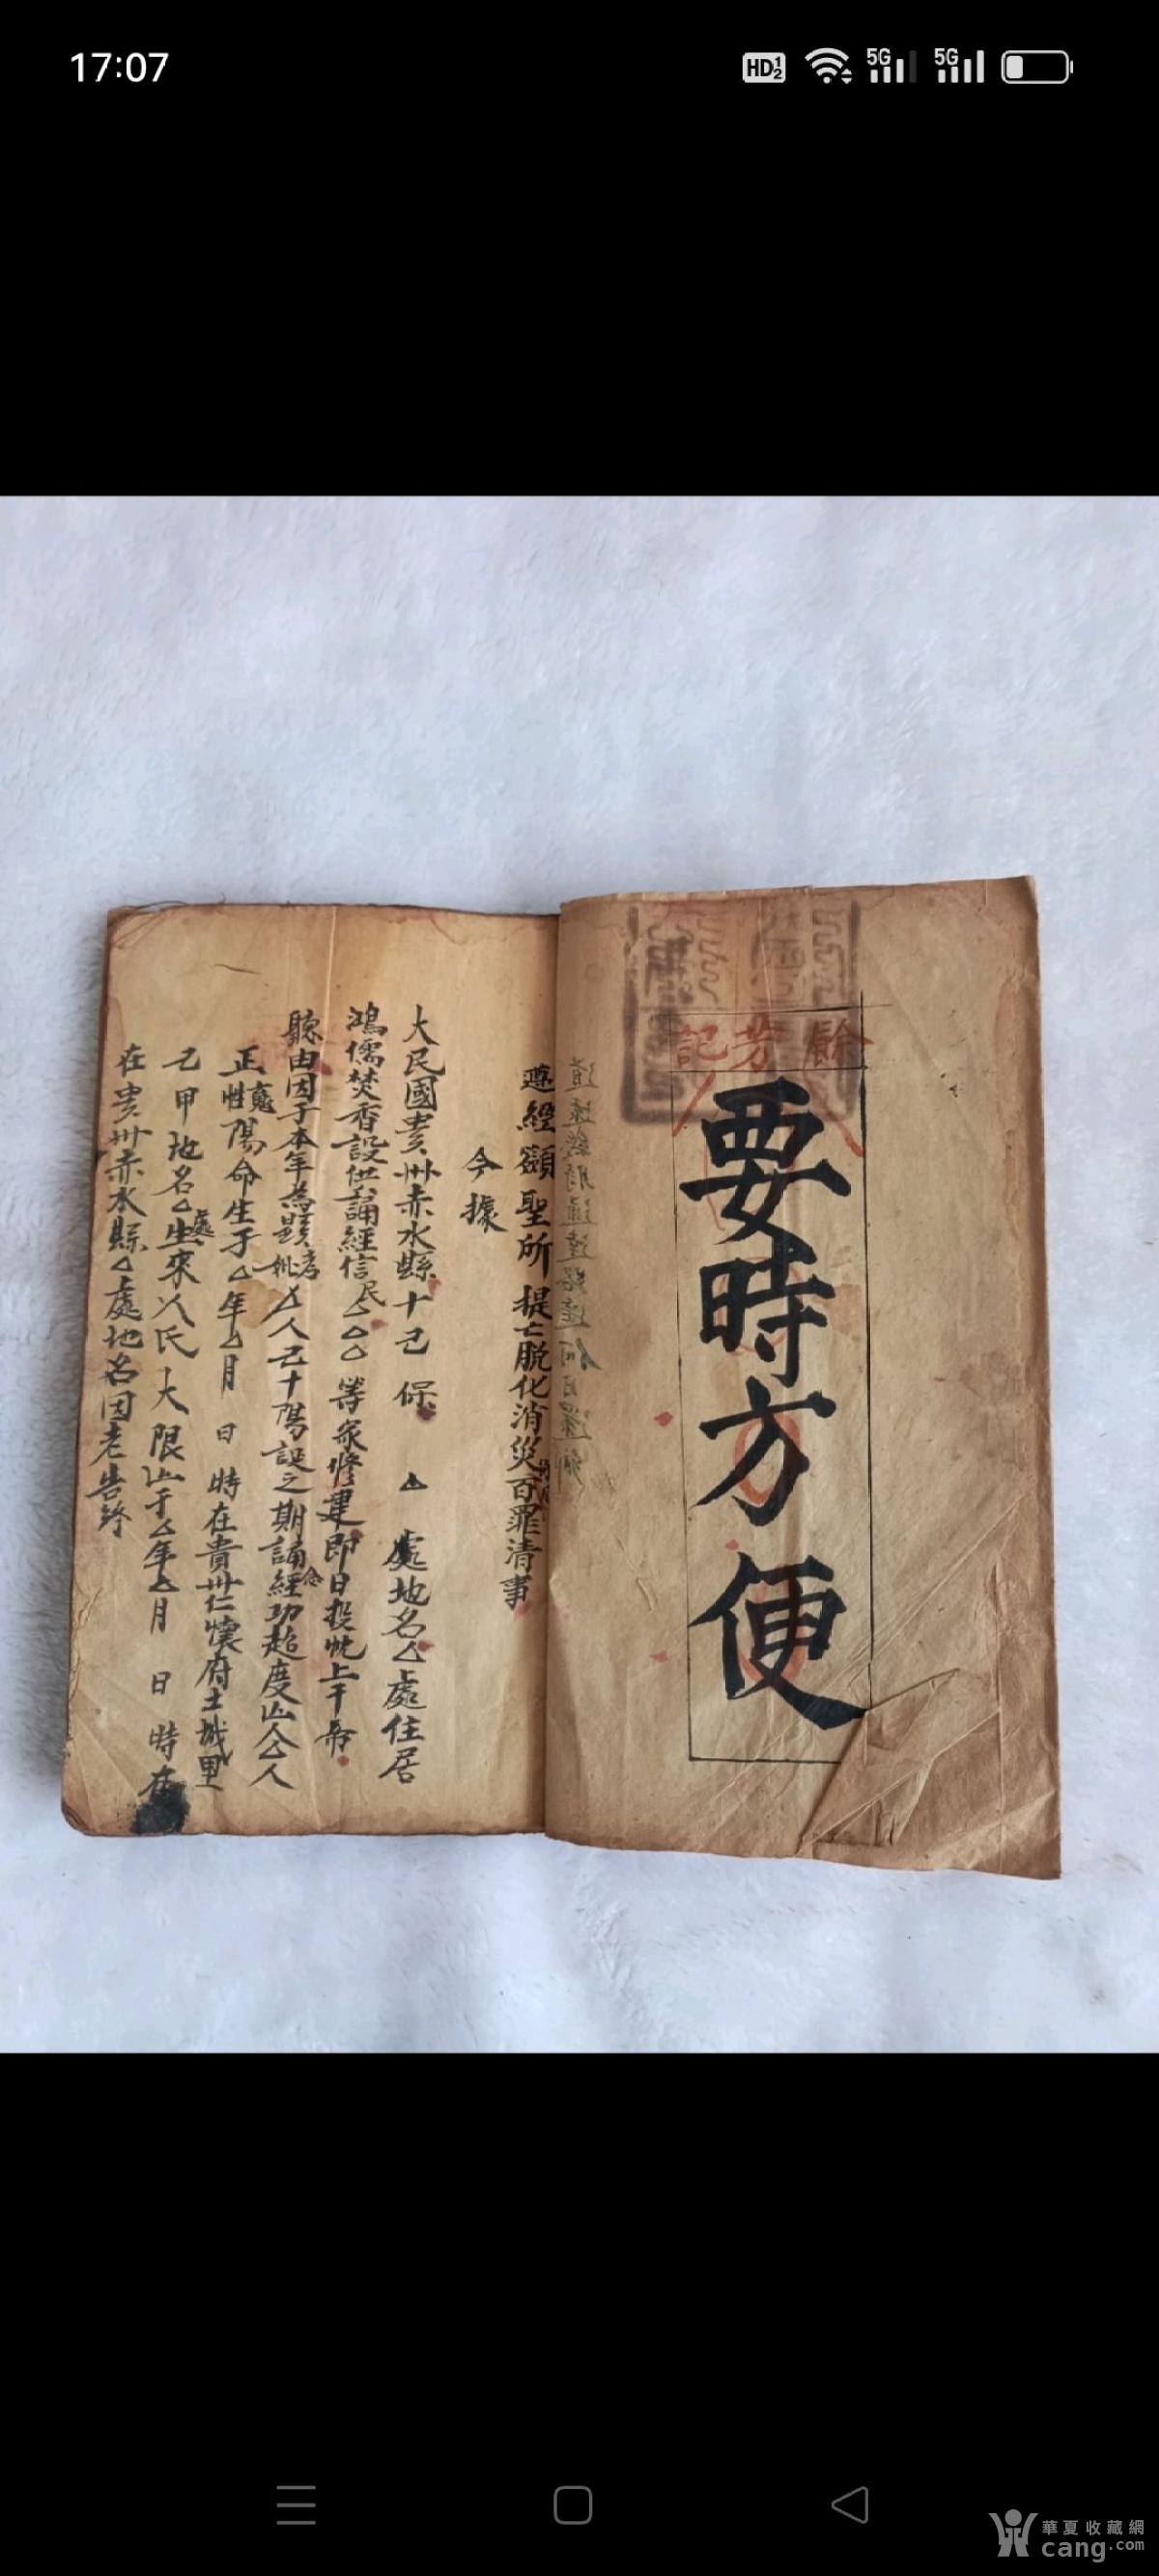 17:07
HD 1 2
5G
5G
餘芳記
要時方便
遵經籲聖所提亡脫化消災百罪清事
今據
大民國貴州赤水縣十己保△處地名△處住居
鴻儒焚香設供誦經信民△△△等衆修建即日投忱上干帝
聽由因于本年為顯考妣△人己十陽誕之期誦經功超度△人
正性陽命生于△年△月日時在貴州仁懷府土城里
乙甲地名△處生來人氏大限于△年△月日時在
在貴州赤水縣△處地名因老告終
華夏收藏網
cang.com